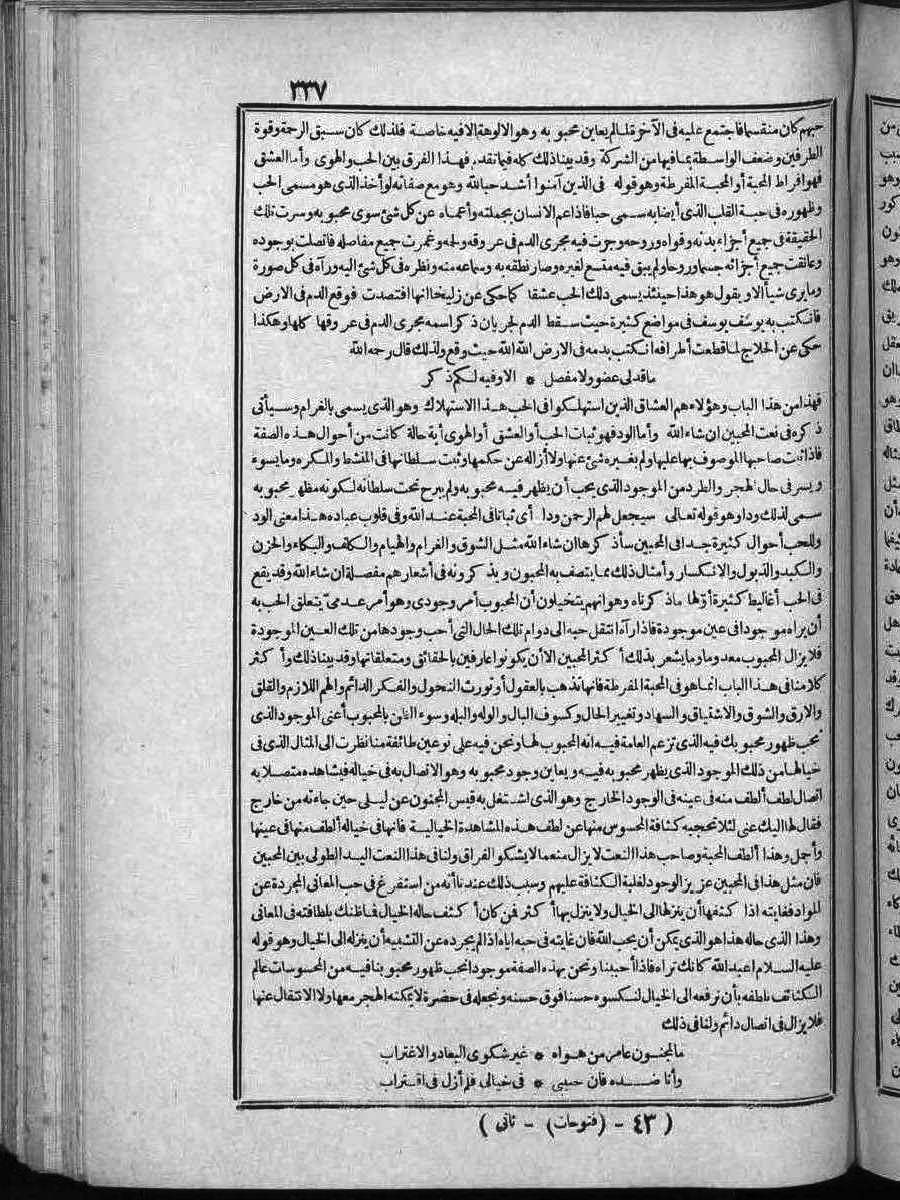 ٣٣٧
حبهم كان منقسما فاجتمع عليه فى الآخرة لما لم يعاين محبوبه وهو الالوهة الا فيه خاصة فلذلك كان سبق الرحمة وقوة
الطرفين وضعف الواسطة بما فيها من الشركة وقد بينا ذلك كله فيما تقدم فهذا الفرق بين الحب والهوى وأما العشق
فهو افراط المحبة أو المحبة المفرطة وهو قوله فى الذين آمنوا أشد حبا لله وهو مع صفاته لو أخذ الذى هو مسمى الحب
وظهوره فى حبة القلب الذى أيضا به سمى حبا فاذا عم الانسان بجملته وأعماه عن كل شئ سوى محبوبه وسرت تلك
الحقيقة فى جميع أجزاء بدنه وقواه وروحه وجرت فيه مجرى الدم فى عروقه ولحمه وغمرت جميع مفاصله فاتصلت بوجوده
وعانقت جميع أجزائه جسما وروحا ولم يبق فيه متسع لغيره وصار نطقه به وسماعه منه ونظره فى كل شئ اليه ورآه فى كل صورة
وما يرى شيأ الا ويقول هو هذا حينئذ يسمى ذلك الحب عشقا كما حكى عن زليخا انها افتصدت فوقع الدم فى الارض
فانكتب به يوسف يوسف فى مواضع كثيرة حيث سقط الدم لجريان ذكر اسمه مجرى الدم فى عروقها كلها وهكذا
حكى عن الحلاج لما قطعت أطرافه انكتب بدمه فى الارض الله الله حيث وقع ولذلك قال رحمه الله
ما قد لى عضو ولا مفصل * الا وفيه لكم ذكر
فهذا من هذا الباب وهؤلاء هم العشاق الذين استهلكوا فى الحب هذا الاستهلاك وهو الذى يسمى بالغرام وسيأتى
ذكره فى نعت المحبين ان شاء الله وأما الود فهو ثبات الحب أو العشق أو الهوى أية حالة كانت من أحوال هذه الصفة
فاذا ثبت صاحبها الموصوف بها عليها ولم يغيره شئ عنها ولا أزاله عن حكمها وثبت سلطانها فى المنشط والمكره وما يسوء
ويسر فى حال الهجر والطرد من الموجود الذى يحب أن يظهر فيه محبوبه ولم يبرح تحت سلطانه لكونه مظهر محبوبه
سمى لذلك ودا وهو قوله تعالى سيجعل لهم الرحمن ودا أى ثباتا فى المحبة عند الله وفى قلوب عباده هذا معنى الود
وللحب أحوال كثيرة جدا فى المحبين سأذكرها ان شاء الله مثل الشوق والغرام والهيام والكلف والبكاء والحزن
والكبد والذبول والانكسار وأمثال ذلك مما يتصف به المحبون ويذكرونه فى أشعارهم مفصلة ان شاء الله وقد يقع
فى الحب أغاليط كثيرة أولها ما ذكرناه وهو انهم يتخيلون أن المحبوب أمر وجودى وهو أمر عدمى يتعلق الحب به
أن يراه موجودا فى عين موجودة فاذا رآه انتقل حبه الى دوام تلك الحال التى أحب وجودها من تلك العين الموجودة
فلا يزال المحبوب معدوما وما يشعر بذلك أكثر المحبين الا أن يكونوا عارفين بالحقائق ومتعلقاتها وقد بينا ذلك وأكثر
كلامنا فى هذا الباب انما هو فى المحبة المفرطة فانها تذهب بالعقول أو تورث النحول والفكر الدائم والهم اللازم والقلق
والارق والشوق والاشتياق والسهاد وتغيير الحال وكسوف البال والوله والبله وسوء الظن بالمحبوب أعنى الموجود الذى
تحب ظهور محبوبك فيه الذى تزعم العامة فيه انه المحبوب لها ونحن فيه على نوعين طائفة منا نظرت الى المثال الذى فى
خيالها من ذلك الموجود الذى يظهر محبوبه فيه ويعاين وجود محبوبه وهو الاتصال به فى خياله فيشاهده متصلا به
اتصال لطف ألطف منه فى عينه فى الوجود الخارج وهو الذى اشتغل به قيس المجنون عن ليلى حين جاءته من خارج
فقال لها اليك عنى لئلا تحجبه كثافة المحسوس منها عن لطف هذه المشاهدة الخيالية فانها فى خياله ألطف منها فى عينها
وأجمل وهذا ألطف المحبة وصاحب هذا النعت لا يزال منعما لا يشكو الفراق ولنا فى هذا النعت اليد الطولى بين المحبين
فان مثل هذا فى المحبين عزيز الوجود لغلبة الكثافة عليهم وسبب ذلك عندنا أنه من استفرغ فى حب المعانى المجردة عن
المواد فغايته اذا كثفها أن ينزلها الى الخيال ولا ينزل بها أكثر فمن كان أكثف حاله الخيال فما ظنك بلطافته فى المعانى
وهذا الذى حاله هذا هو الذى يمكن أن يحب الله فان غايته فى حبه اياه اذا لم يجرده عن التشبيه أن ينزله الى الخيال وهو قوله
عليه السلام اعبد الله كانك تراه فاذا أحببنا ونحن بهذه الصفة موجودا نحب ظهور محبوبنا فيه من المحسوسات عالم
الكثائف نلطفه بأن نرفعه الى الخيال لنكسوه حسنا فوق حسنه ونجعله فى حضرة لا يمكنه الهجر معها ولا الانتقال عنها
فلا يزال فى اتصال دائم ولنا فى ذلك
ما لمجنون عامر من هواه * غير شكوى البعاد والاغتراب
وأنا ضده فان حبيبى * فى خيالى فلم أزل فى اقتراب
( ٤٣ - (فتوحات) - ثانى )